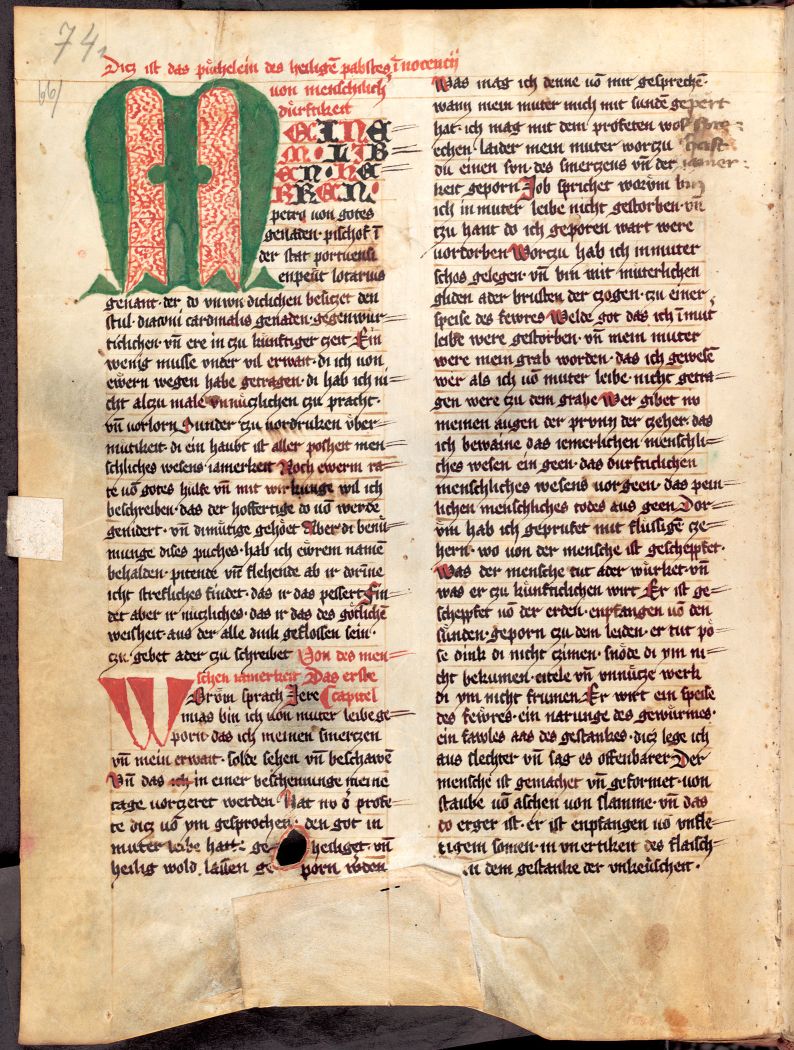 74
66
Dicz ist das půchelein des heiligē pabstes īnocencij
von menschlich
důrftikeit
MEINE
M · LIB
EN · HE
RREN ·
petro von gotes
genaden · pischof ī
der stat portuensi
enpeut lotarius
genant · der do vnwirdiclichen besiczet den
stul · diaconi cardinalis genaden · gegenwur=
ticlichen · vn̄ ere in czu kunftiger czeit Ein
wenig musse vnder vil erwait · di ich von
ewern wegen habe getragen · di hab ich ni=
cht alczu male vnnůczlichen czu pracht ·
vn̄ vorlorn Sunder czu vordruken vber=
mutikeit · di ein haubt ist aller posheit men=
schliches wesens iamerkeit Noch ewerm ra=
te vō gotes hulfe vn̄ mit wirkunge wil ich
beschreiben · das der hoffertige do vō werde
genidert · vn̄ dimůtige gehöet Aber di benů=
munge dises puches · hab ich ewrem namē
behalden · pitende vn̄ flehende ab ir dorīne
icht strefliches findet · das ir das pessert Fin=
det aber ir nucliches · das ir das des gotlichē
weisheit · aus der alle dink geflossen sein ·
czu gebet ader czu schreibet Von des men=
schen iamerkeit Das erste
WOrům sprach Jere capitel
mias bin ich von muter leibe ge=
porn · das ich meinen smerczen
vn̄ mein erwait · solde sehen vn̄ beschawē
Vn̄ das ich in einer beschemunge meine
tage vorczeret werden Hat nv d' profe=
te dicz vō ym gesprochen · den got in
muter leibe hatt · ge heiliget · vn̄
heilig wold lassen ge porn wden
Was mag ich denne vō mir gesprechē ·
wann mein muter mich mit sunden gepert
hat · ich mag mit dem profeten wol spre=
echen laider mein muter worczu hast
du einen son · des smerczens vn̄ der iamer=
keit geporn Job sprichet worům bin
ich in muter leibe nicht gestorben · vn̄
czu hant do ich geporen wart were
vortorben Worczu hab ich in muter
schos gelegen · vn̄ bin mit muterlichen
gliden ader brusten der czogen · czu einer
speise des fewres Welde got das ich ī mut'
leibe were gestorben · vn̄ mein muter
were mein grab worden · das ich gewesē
wer als ich vō muter leibe · nicht getra=
gen were czu dem grabe Wer gibet nv
meinen augen der prvnn der czeher · das
ich bewaine das iemerlichen menschli=
ches wesen ein geen · das durfticlichen
menschliches wesens vorgeen · das pein=
lichen menschliches todes aus geen Dor=
vm hab ich geprufet mit flussigen cze=
hern · wo von der mensche ist gescheppfet ·
Was der mensche tut ader wůrket · vn̄
was er czu kůnfticlichen wirt Er ist ge=
scheppfet vō der erden · enpfangen vō den
sůnden · geporn czu dem leiden · er tut pö=
se dink di nicht czimen · snöde di ym ni=
cht bekumen · eitele vn̄ vnnücze werk
di ym nicht frumen Er wirt ein speise
des fewres · ein narunge des gewůrmes ·
ein fawles aas des gestankes · dicz lege ich
aus slechter vn̄ sag es offenbarer Der
mensche ist gemachet vn̄ geformet · von
staube vō aschen von slamme · vn̄ das
do erger ist · er ist enpfangen vō vnfle=
tigem somen · in vnertikeit des flaisch=
in dem gestanke der vnkeuscheit ·